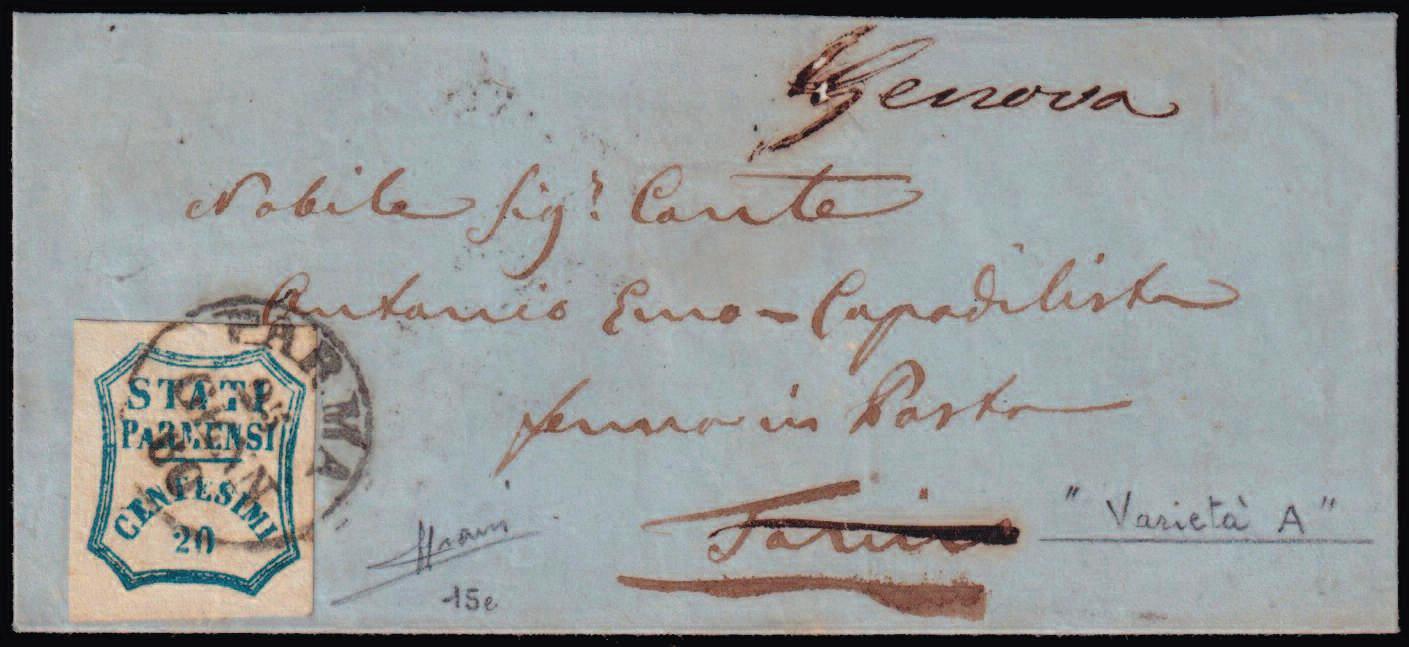 Genova
Nobile Sig.r Conte
Antonio Emo-Capodilista
ferma in Posta
Torino
"Varietà A"
PARMA
25
GEN
60
STATI
PARMENSI
CENTESIMI
20
15e